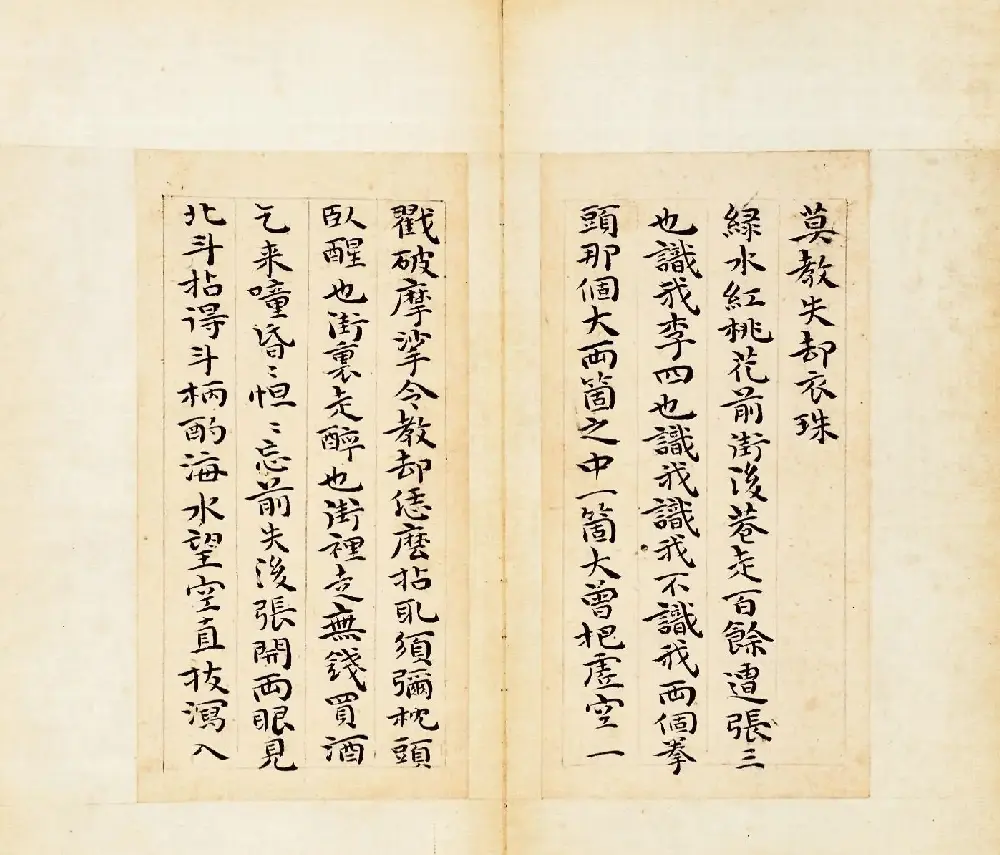 莫教失却衣珠
緑水紅桃花前街後巷走百餘遭張三
也識我李四也識我識我不識我两個拳
頭那個大两箇之中一箇大曾把虚空一
戳破摩挲令教却恁麽拈取須彌枕頭
臥醒也街裏走醉也街裡走無錢買酒
乞来噇昏〻怛〻忘前失後張開両眼見
北斗拈得斗柄酌海水望空直抜瀉入